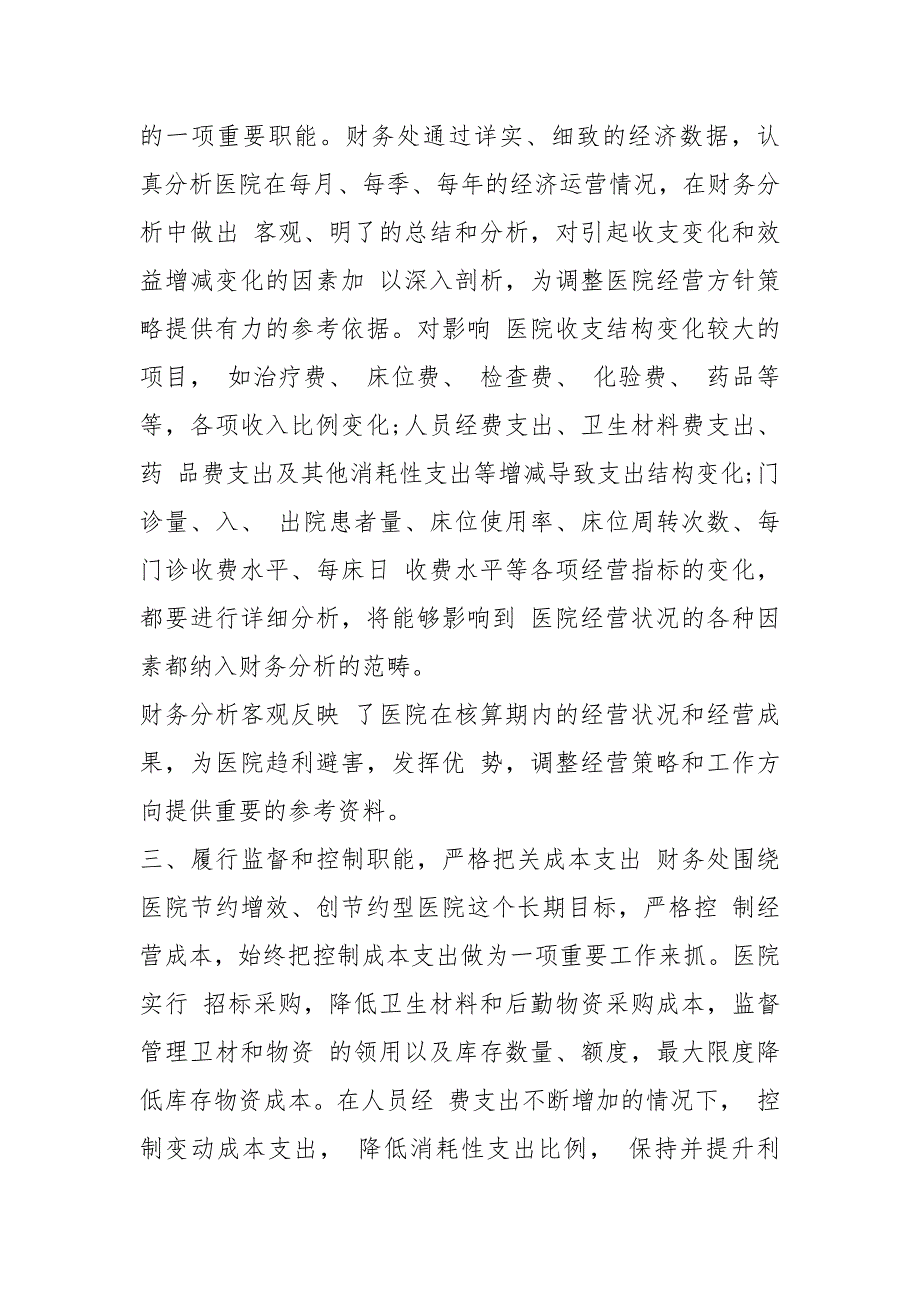 的一项重要职能。财务处通过详实、细致的经济数据，认
真分析医院在每月、每季、每年的经济运营情况，在财务分
析中做出 客观、明了的总结和分析，对引起收支变化和效
益增减变化的因素加 以深入剖析，为调整医院经营方针策
略提供有力的参考依据。对影响 医院收支结构变化较大的
项目， 如治疗费、 床位费、 检查费、 化验费、 药品等
等，各项收入比例变化;人员经费支出、卫生材料费支出、
药 品费支出及其他消耗性支出等增减导致支出结构变化;门
诊量、入、 出院患者量、床位使用率、床位周转次数、每
门诊收费水平、每床日 收费水平等各项经营指标的变化，
都要进行详细分析，将能够影响到 医院经营状况的各种因
素都纳入财务分析的范畴。
财务分析客观反映 了医院在核算期内的经营状况和经营成
果，为医院趋利避害，发挥优 势，调整经营策略和工作方
向提供重要的参考资料。
三、履行监督和控制职能，严格把关成本支出 财务处围绕
医院节约增效、创节约型医院这个长期目标，严格控 制经
营成本，始终把控制成本支出做为一项重要工作来抓。医院
实行 招标采购，降低卫生材料和后勤物资采购成本，监督
管理卫材和物资 的领用以及库存数量、额度，最大限度降
低库存物资成本。在人员经 费支出不断增加的情况下， 控
制变动成本支出， 降低消耗性支出比例， 保持并提升利